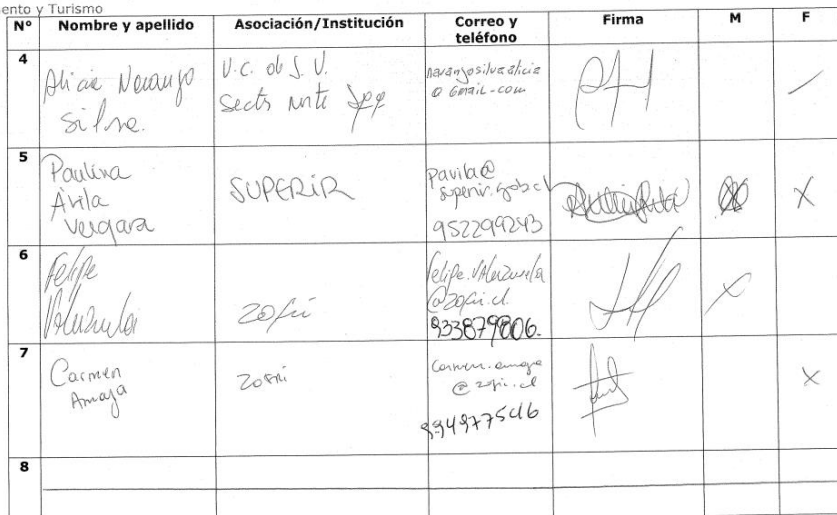 ento y Turismo
N° Nombre y apellido Asociación/Institución Correo y teléfono Firma M F
4
Alicia Naranjo
Silva.
U.C. de J. V.
Sector norte
naranjosilvaalicia
@ Gmail.com
5
Paulina
Avila
Vergara
SUPERIR
pavila@
superir.gob.cl
952299243
X
6
Felipe
Valenzuela
zofri
felipe.valenzuela
@zofri.cl.
933879806.
X
7
Carmen
Amaya
zofri
Carmen.amaya
@ zofri.cl
X
8